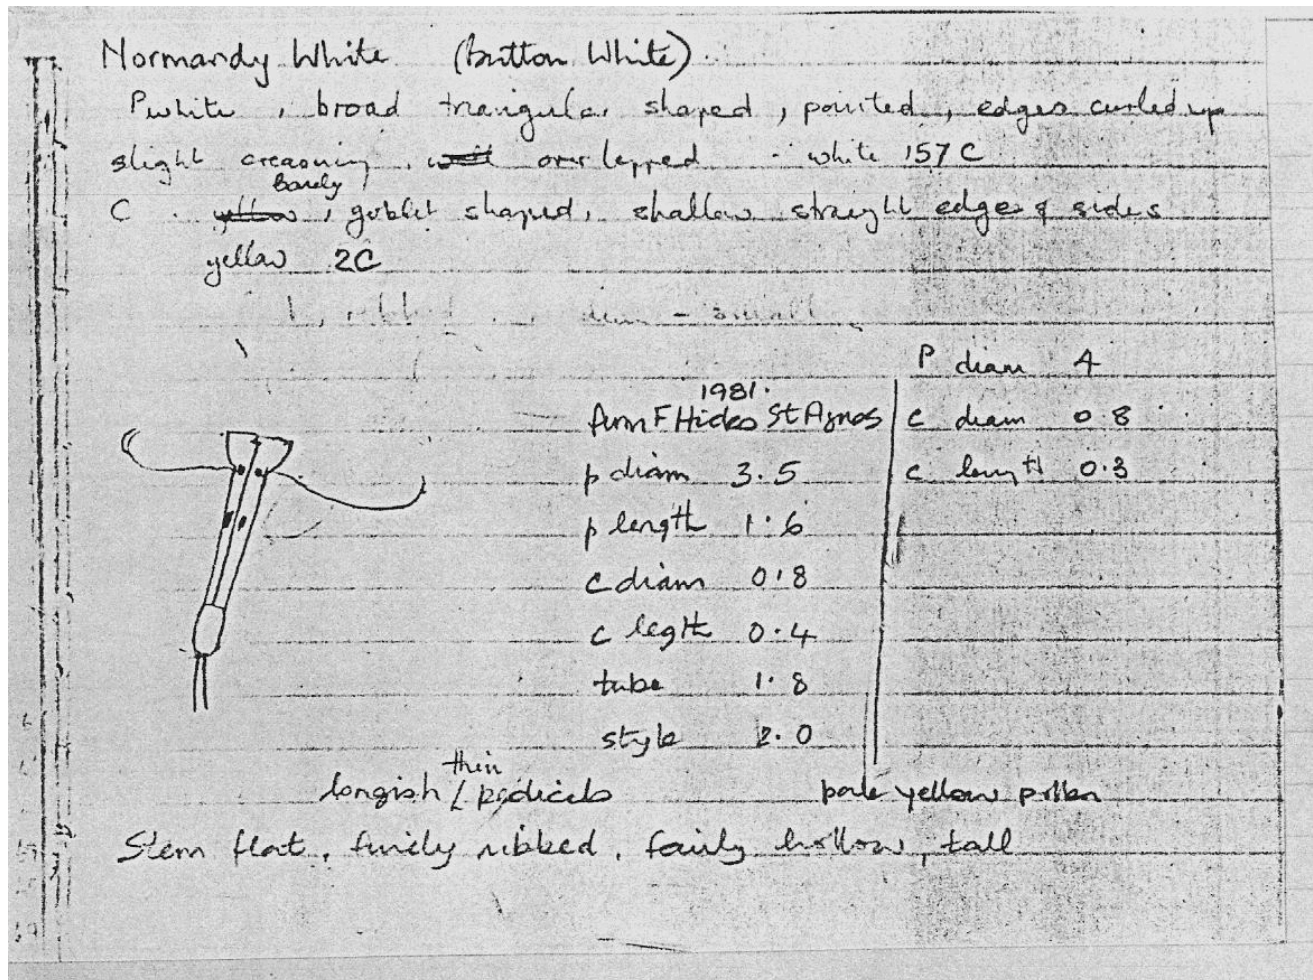 Normandy White (Button White)
P white, broad triangular shaped, pointed, edges curled up
slight creasing, over lapped - white 157 C
Barely
C yellow, goblet shaped, shallow straight edge & sides
yellow 2C
ribbed - small
P diam 4
1981.
F Hicks St Agnes
c diam 0.8
p diam 3.5
c length 0.3
p length 1.6
c diam 0.8
c legth 0.4
tube 1.8
style 2.0
thin
longish pedicels
pale yellow pollen
Stem flat, finely ribbed, fairly hollow, tall